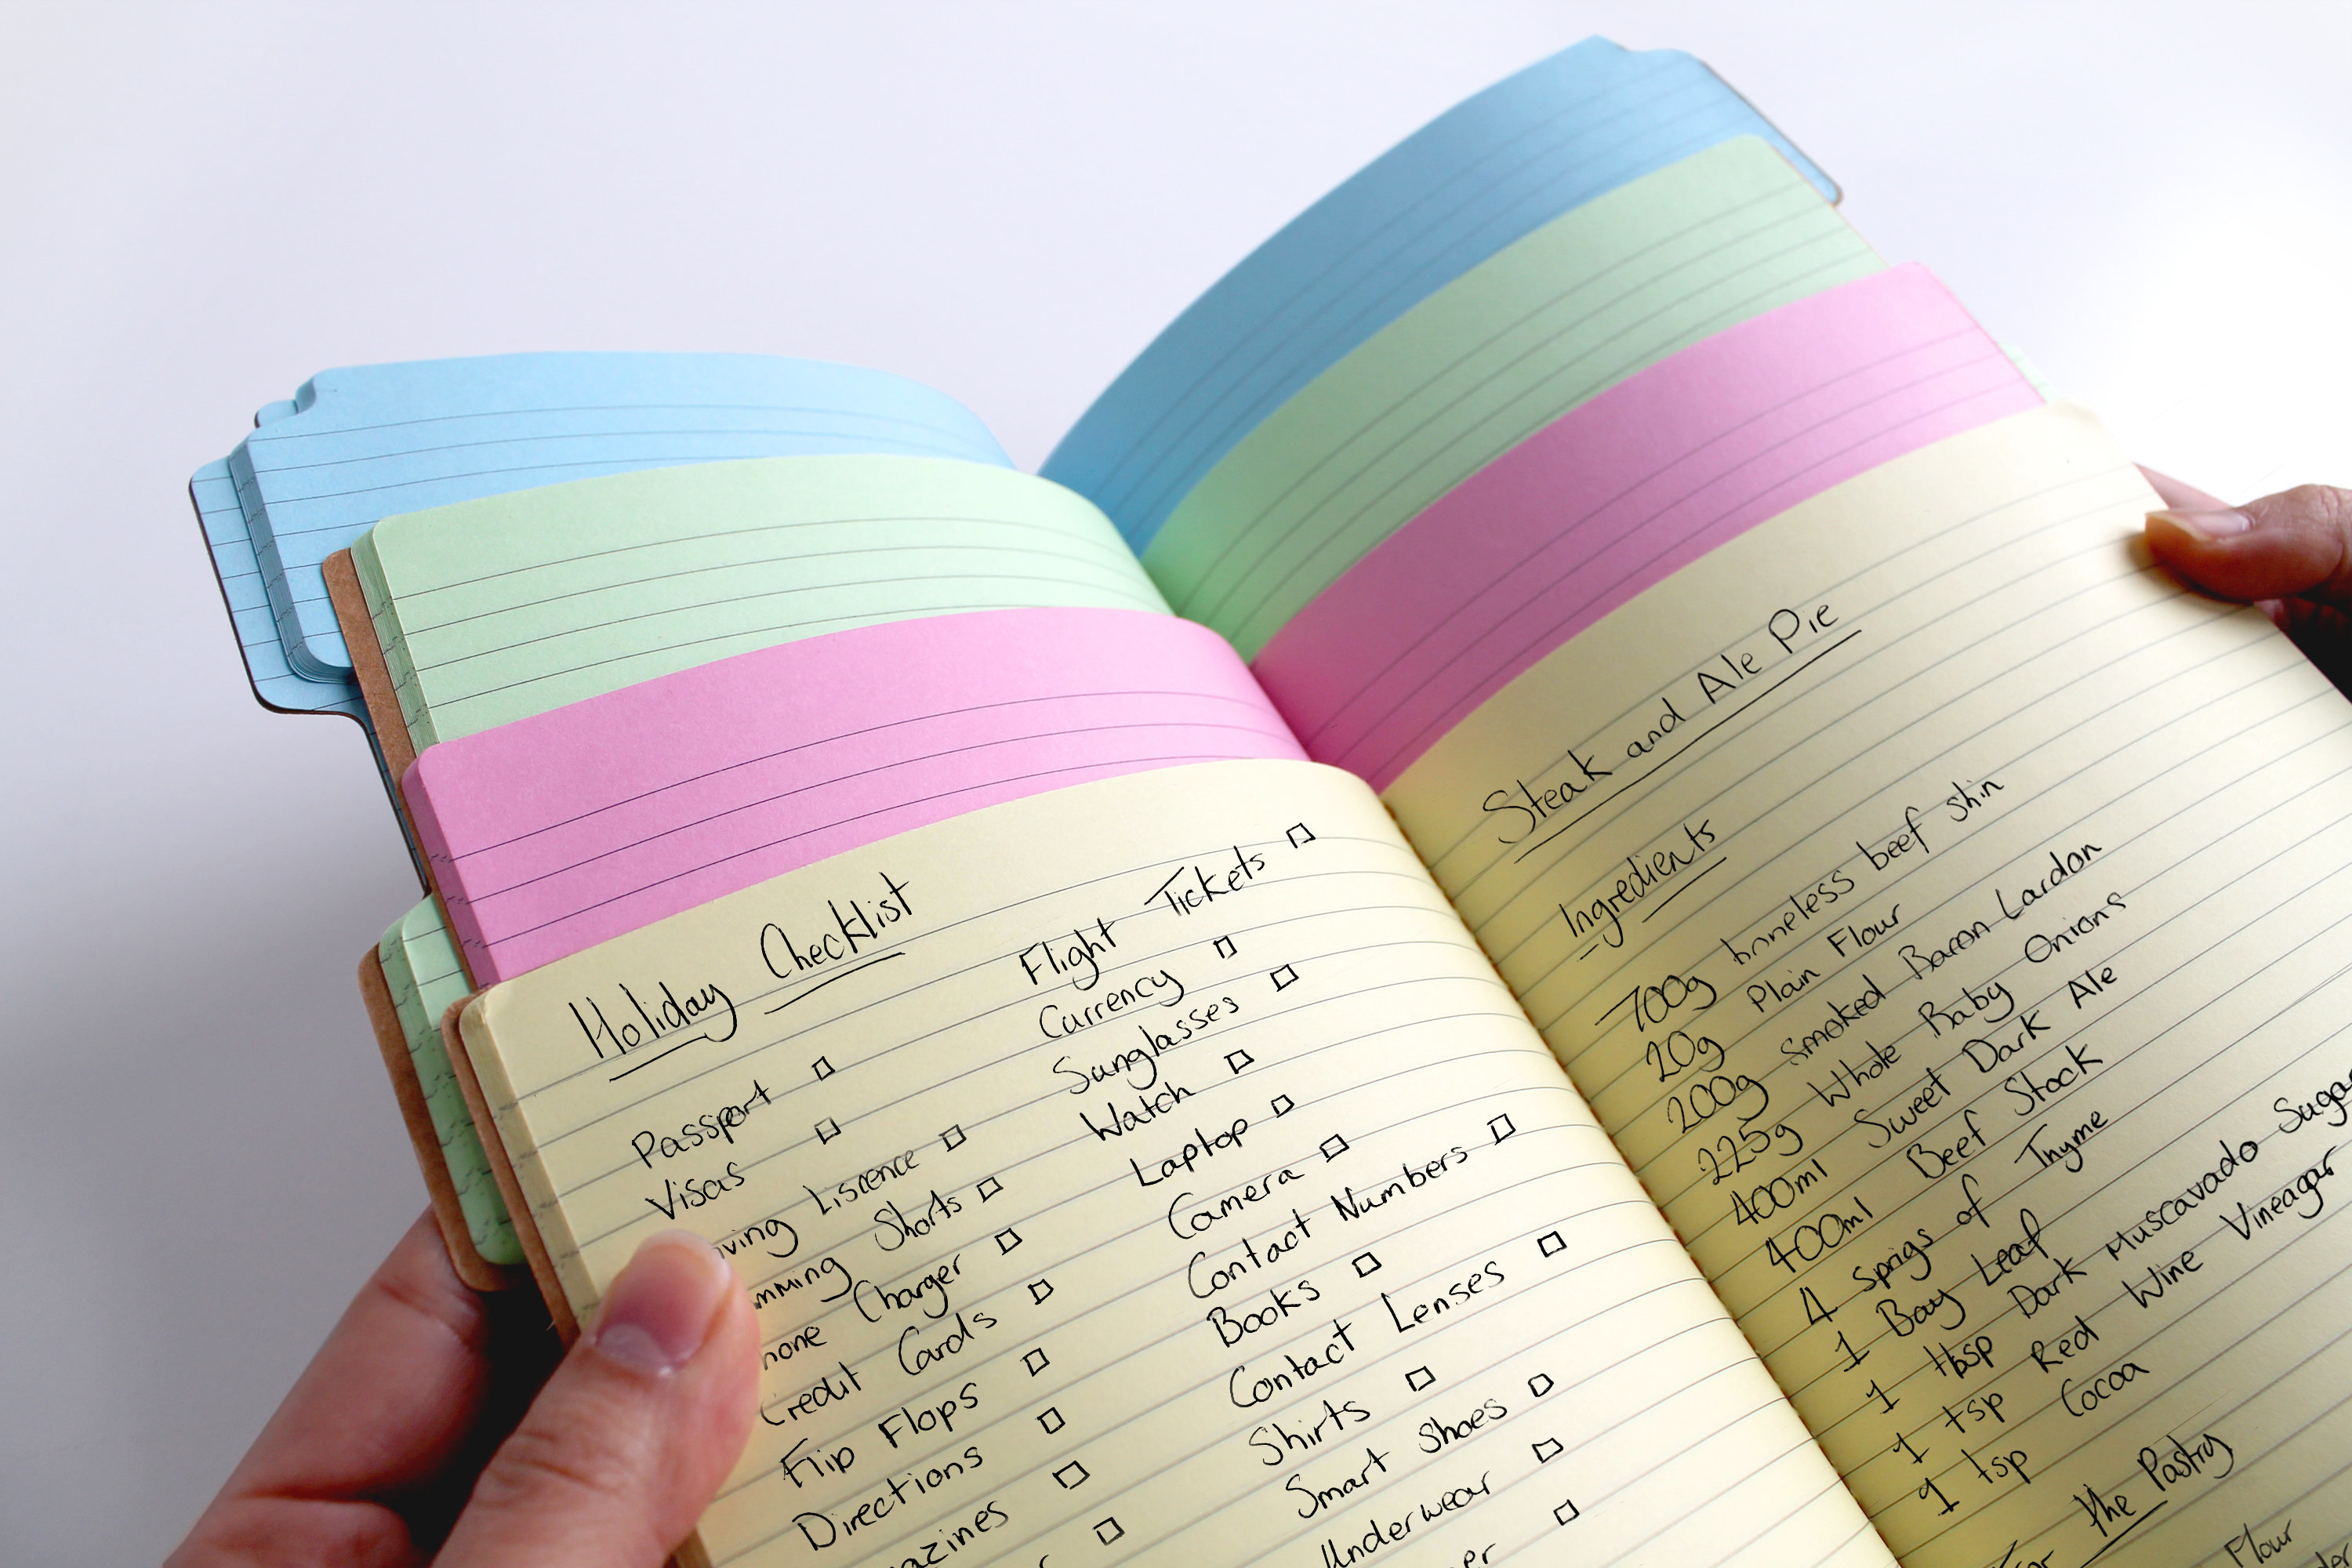 Holiday Checklist
Passport
Visas
Liscence
Shorts
Charger
Credit Cards
Flip Flops
Directions
Flight Tickets
Currency
Sunglasses
Watch
Laptop
Camera
Contact Numbers
Books
Contact Lenses
Shirts
Smart Shoes
Underwear
Steak and Ale Pie
Ingredients
700g boneless beef shin
20g Plain Flour
200g Smoked Bacon Lardon
225g Whole Baby Onions
400ml Sweet Dark Ale
400ml Beef Stock
4 sprigs of Thyme
1 Bay Leaf
1 tbsp Dark Muscavado Sugar
1 tsp Red Wine Vineagar
1 tsp Cocoa
For the Pastry
Flour